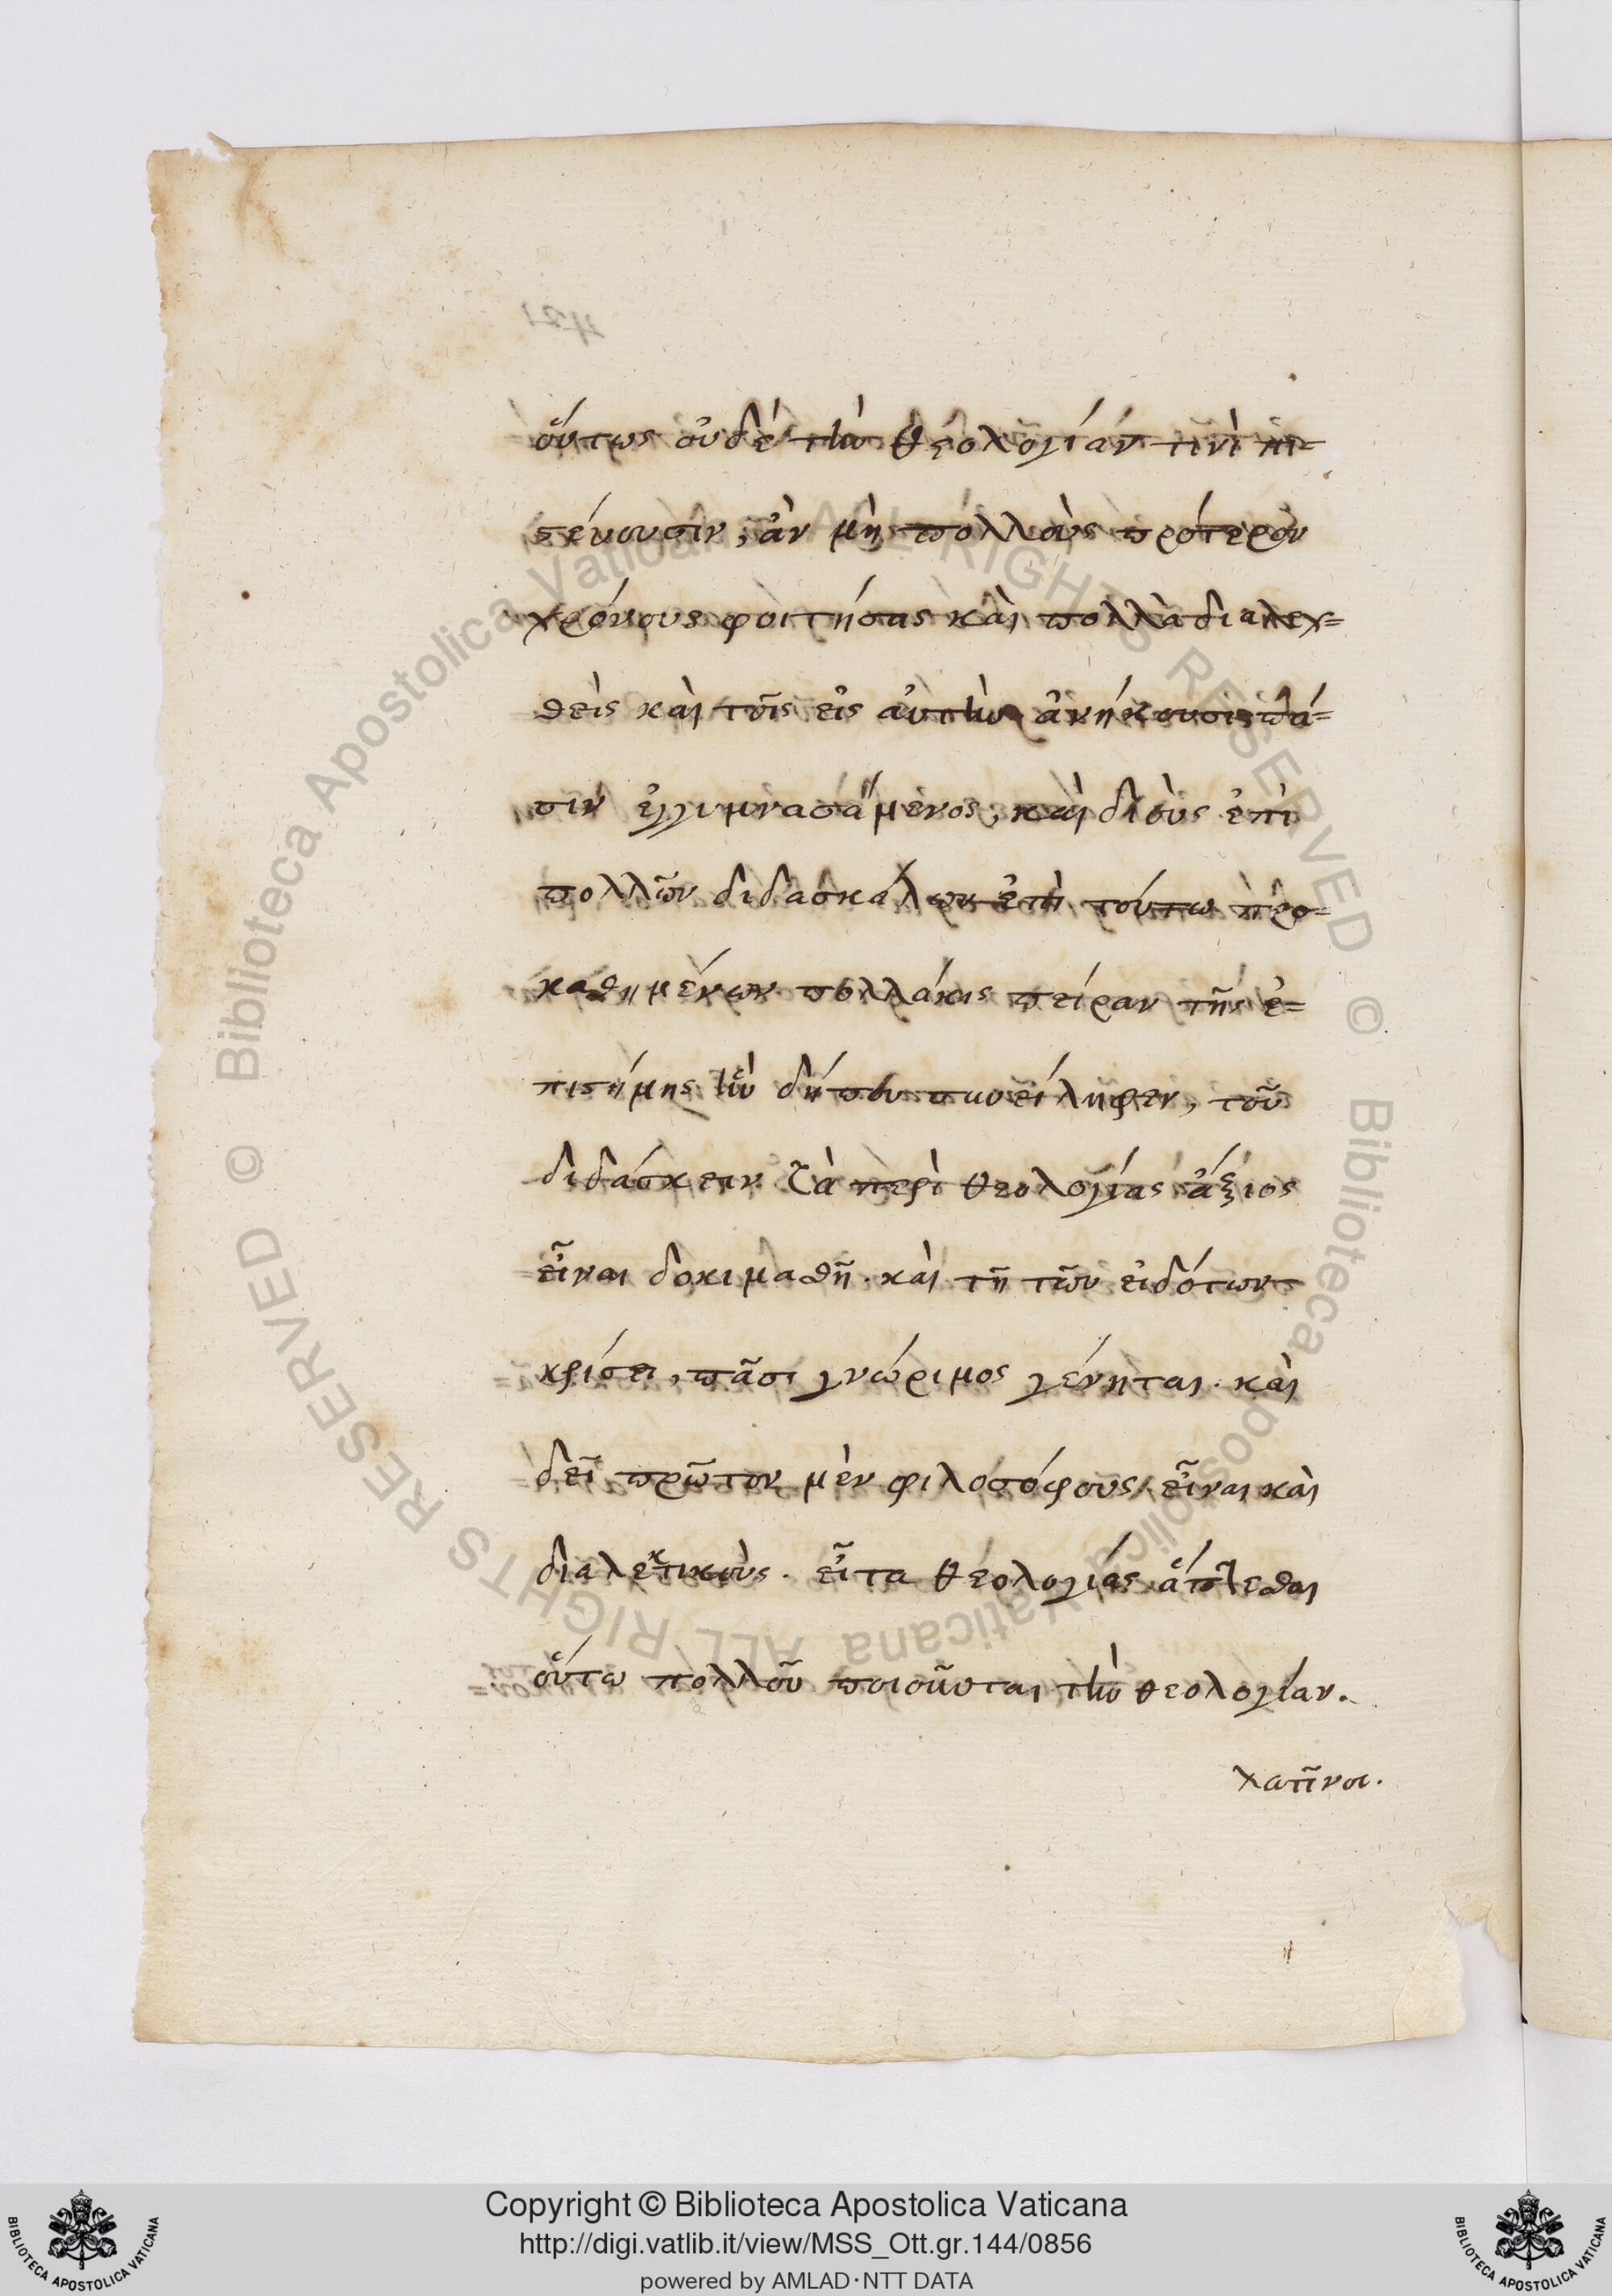 οὕτως οὐδὲ τὴν θεολογίαν τινὶ πι=
στεύουσιν, ἀν μὴ πολλοὺς πρότερον
χρόνους φοιτήσας καὶ πολλὰ διαλεχ=
θεὶς καὶ τοῖς εἰς αὐτὴν ἀνήκουσι πᾶ=
σιν ἐγγυμνασάμενος, καὶ διδοὺς ἐπὶ
πολλῶν διδασκάλων ἐπὶ τούτω προ=
καθημένων πολλάκις πείραν τῆς ἐ=
πιστήμης ἣν δήπου προείληφεν, τοῦ
διδάσκειν τὰ περὶ θεολογίας ἄξιος
εἶναι δοκιμασθῆ. καὶ τῆ τῶν εἰδότων
κρίσει, πᾶσι γνώριμος γένηται. καὶ
δεῖ πρῶτον μὲν φιλοσόφους εἶναι καὶ
διαλεκτικοὺς. εἶτα θεολογίας ἅπτεσθαι
οὕτω πολλοῦ ποιοῦνται τὴν θεολογίαν.
λατῖνοι.
Copyright © Biblioteca Apostolica Vaticana
http://digi.vatlib.it/view/MSS_Ott.gr.144/0856
powered by AMLAD·NTT DATA
BIBLIOTECA APOSTOLICA VATICANA
BIBLIOTECA APOSTOLICA VATICANA
© Biblioteca Apostolica Vaticana ALL RIGHTS RESERVED © Biblioteca Apostolica Vaticana ALL RIGHTS RESERVED